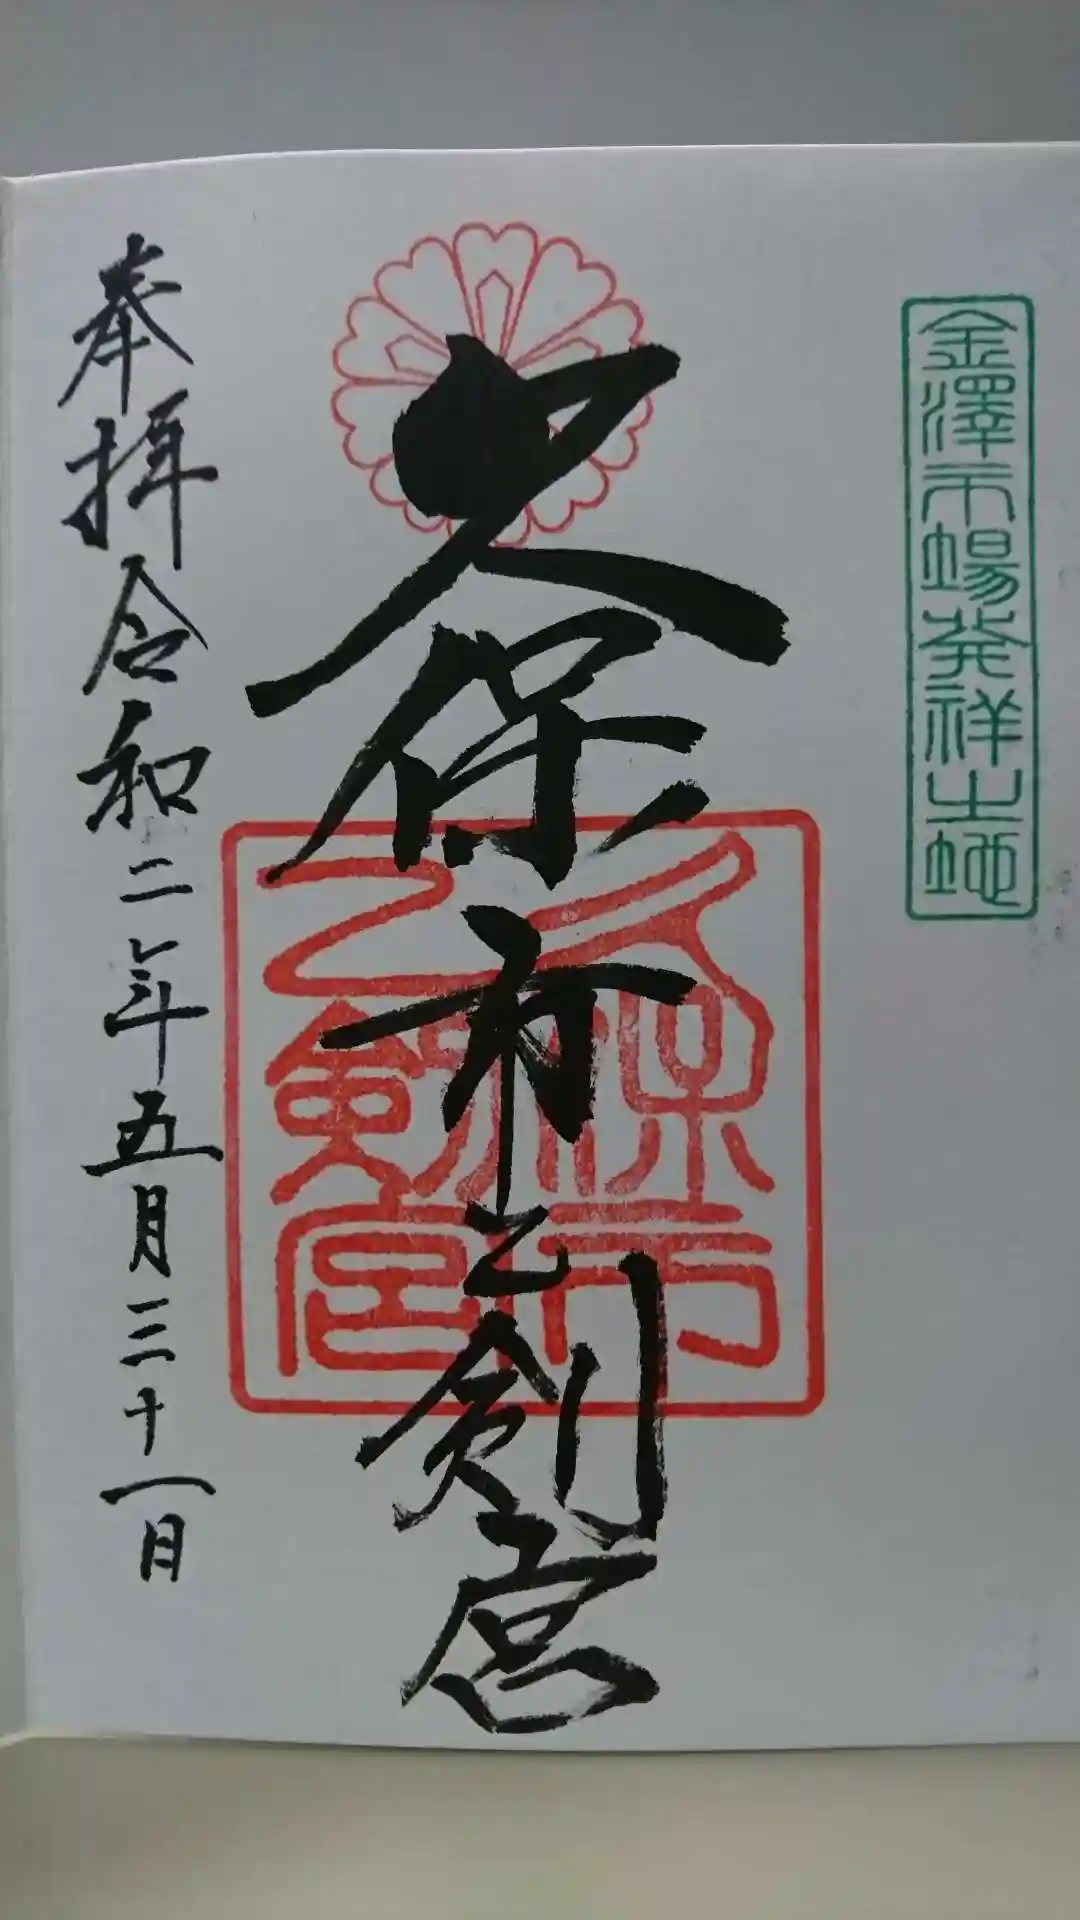 金澤市場発祥之地
久保市乙剣宮
久保市
乙剣宮
奉拝令和二年五月三十一日